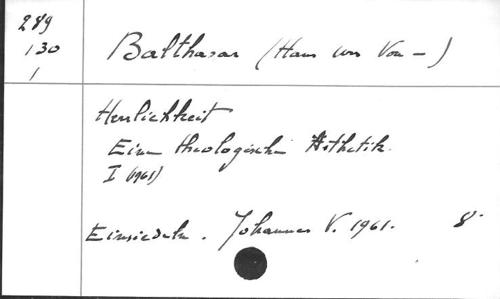 289
130
1
Balthasar (Hans Urs Von –)
Herrlichkeit
Eine theologische Ästhetik.
I (1961)
Einsiedeln. Johannes V. 1961. 8°